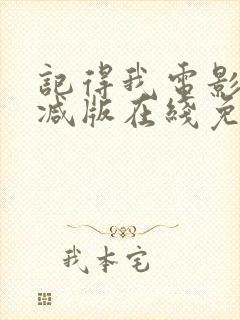 記得我电影
减版在綫免
我本宅